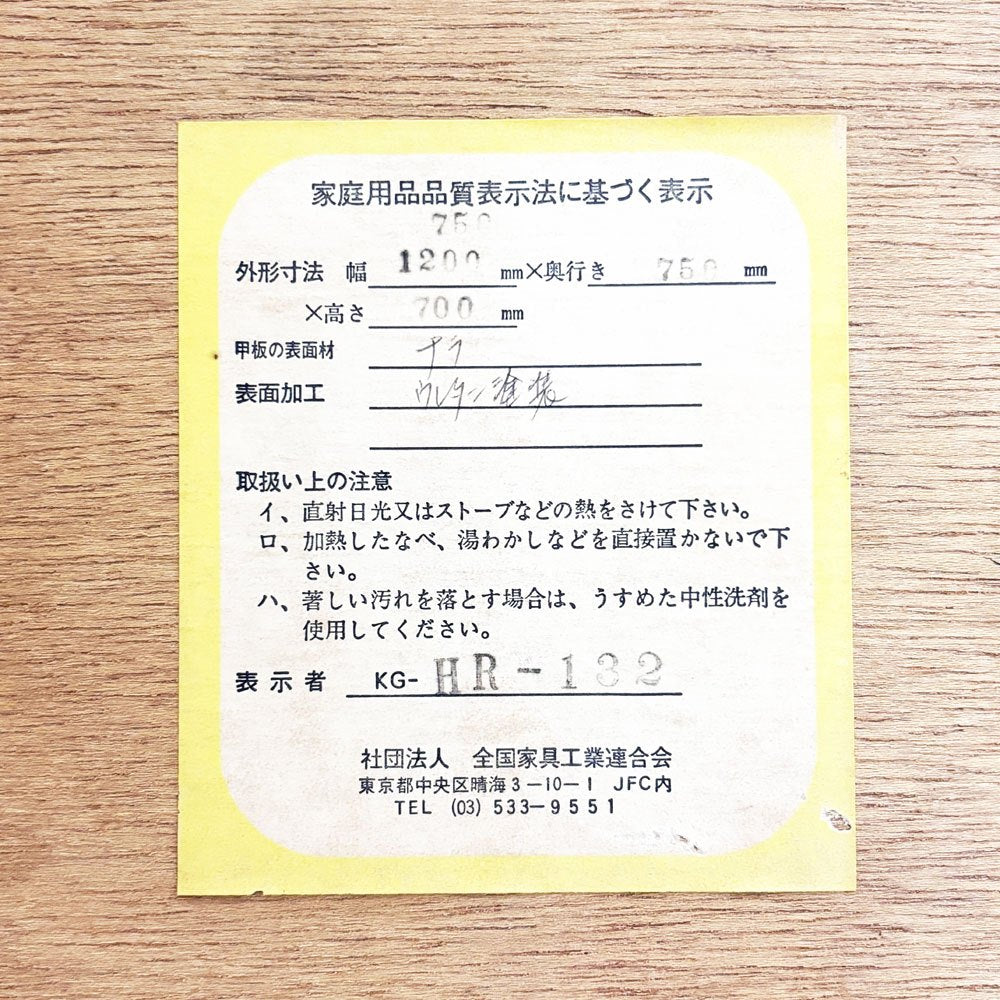 家庭用品品質表示法に基づく表示
750
外形寸法 幅 1200 mm×奥行き 750 mm
×高さ 700 mm
甲板の表面材 ナラ
表面加工 ウレタン塗装
取扱い上の注意
イ、直射日光又はストーブなどの熱をさけて下さい。
ロ、加熱したなべ、湯わかしなどを直接置かないで下
さい。
ハ、著しい汚れを落とす場合は、うすめた中性洗剤を
使用してください。
表示者 KG-HR-132
社団法人 全国家具工業連合会
東京都中央区晴海3-10-1 JFC内
TEL (03) 533-9551